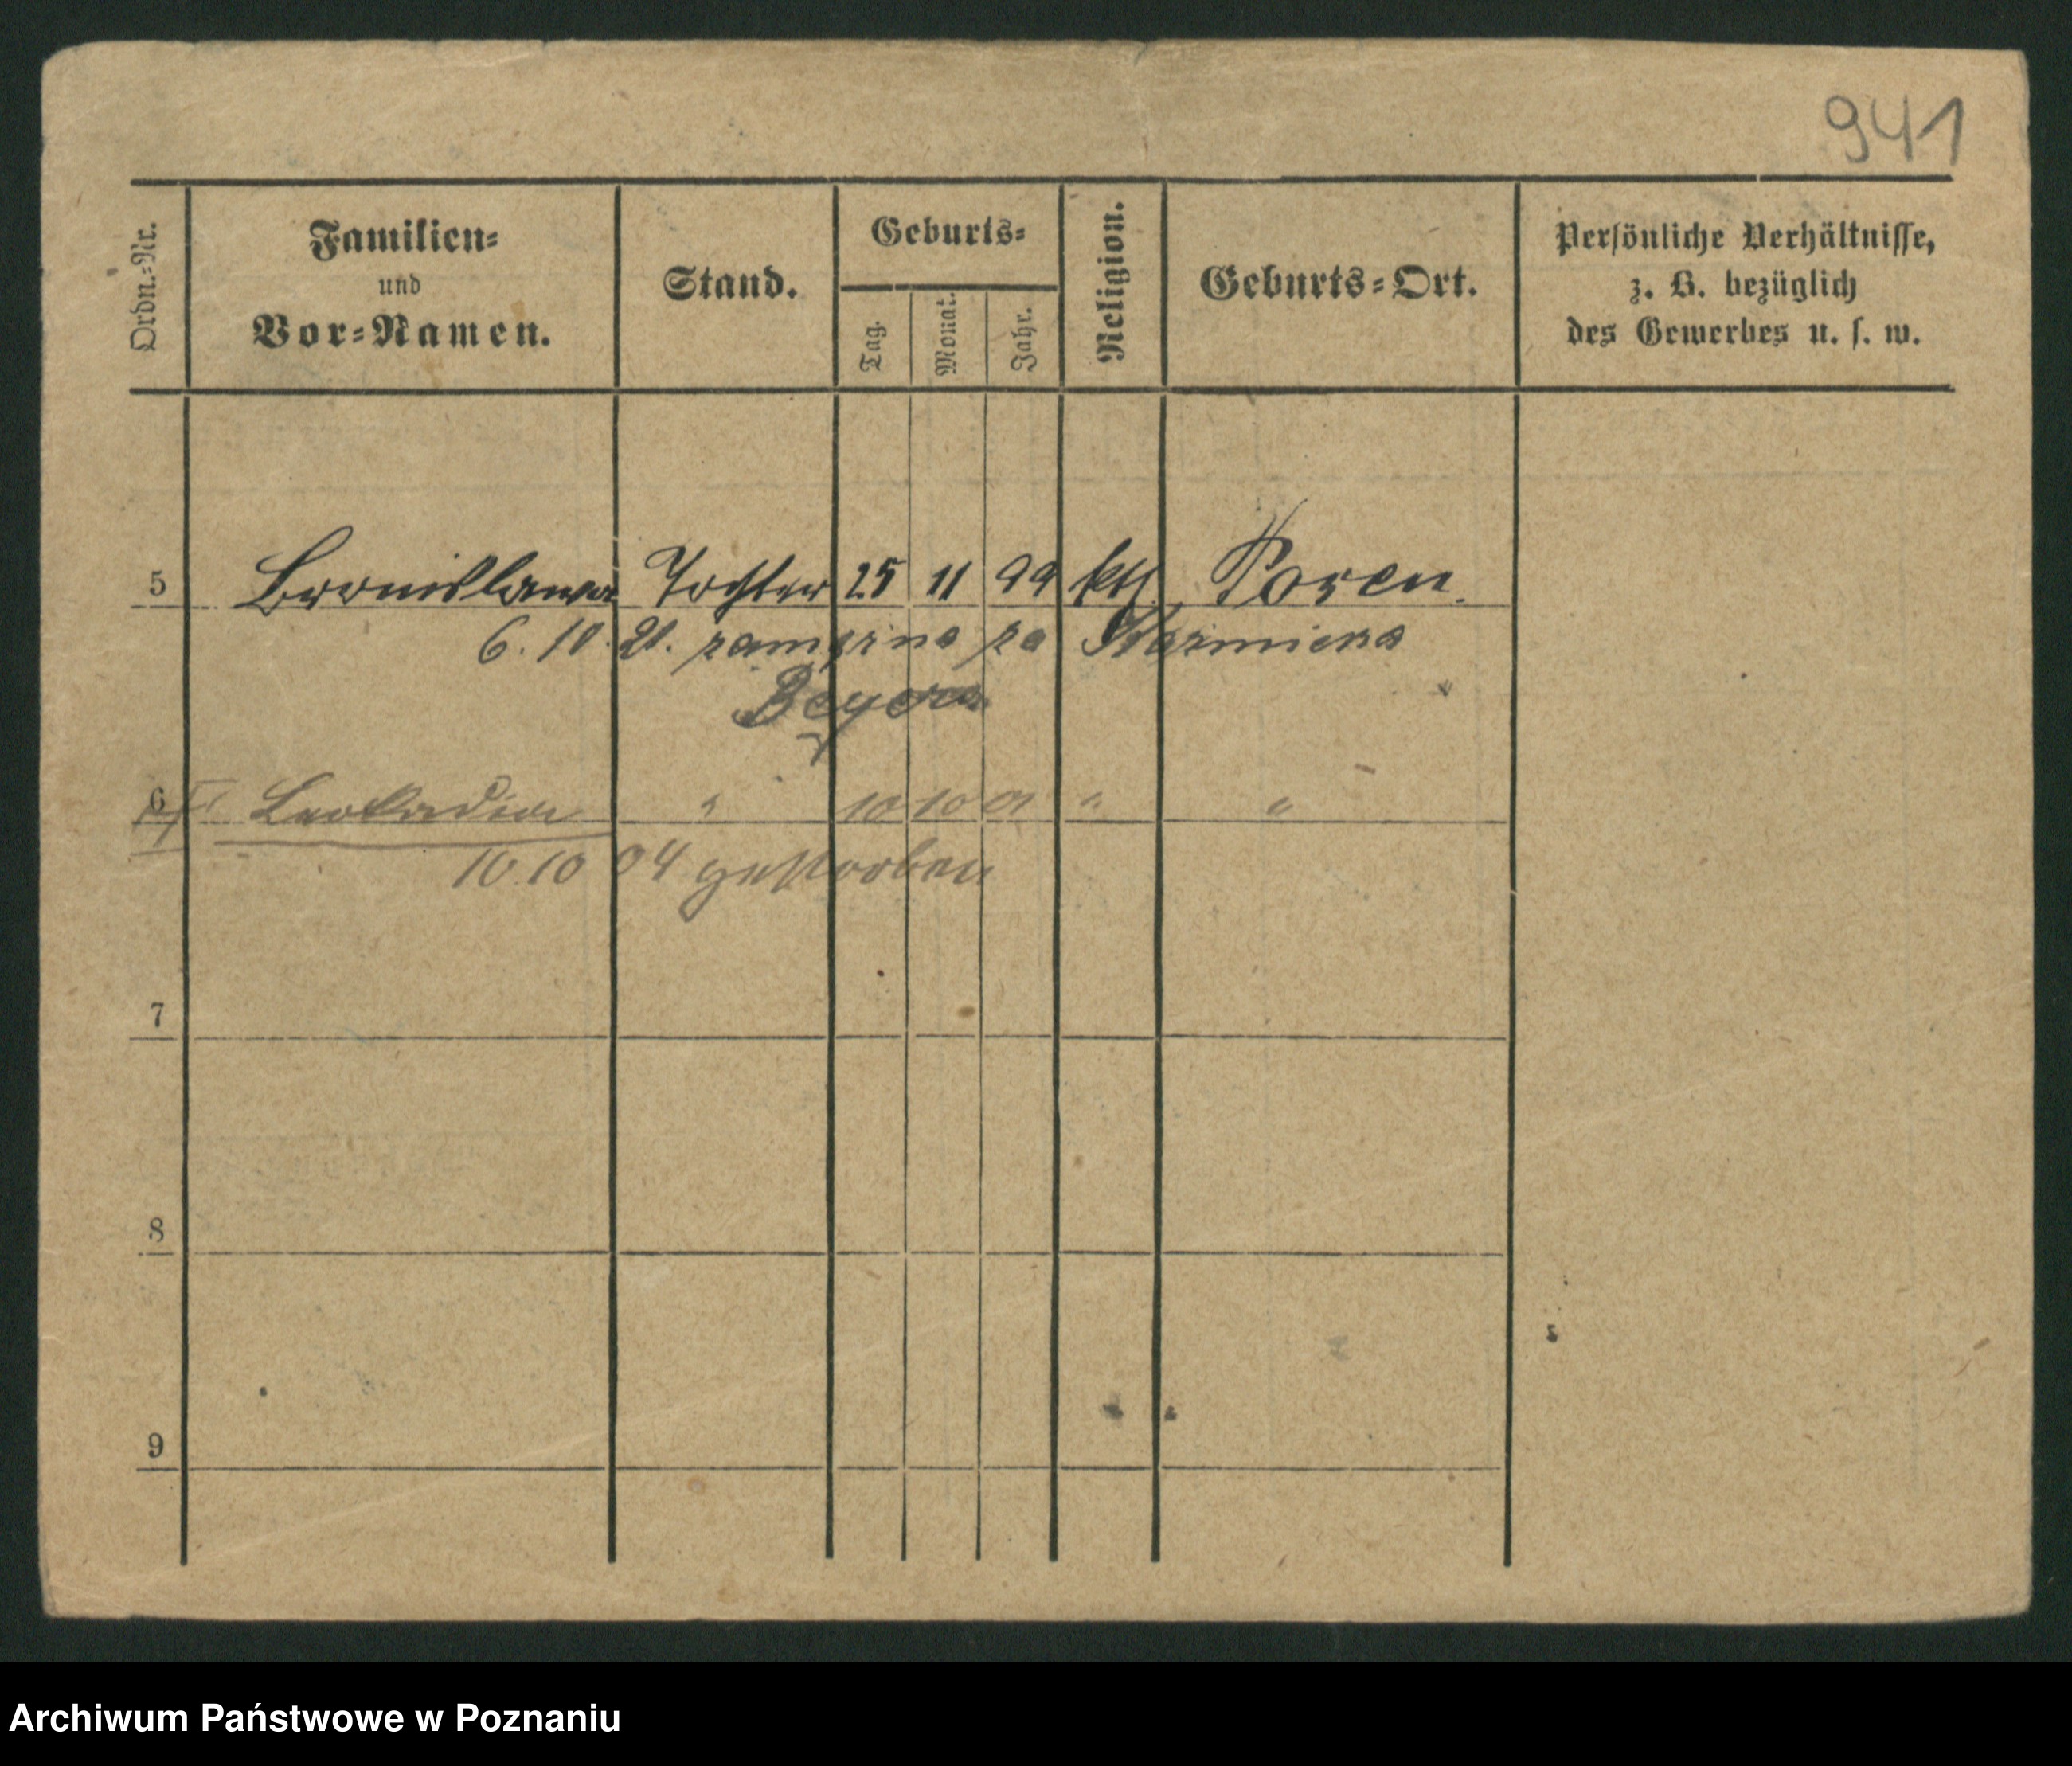 941
Ordn.=Nr.
Familien=
und
Vor=Namen.
Stand.
Geburts=
Tag.
Monat.
Jahr.
Religion.
Geburts=Ort.
Persönliche Verhältnisse,
z. B. bezüglich
des Gewerbes u. s. w.
5 Bronislawa Tochter 25 11 99 kth Posen.
6. 10. 21. zamężna za Kazmierza
Beyera
6 Leokadia " 10 10 01 " "
10 10 04 gestorben
7
8
9
Archiwum Państwowe w Poznaniu